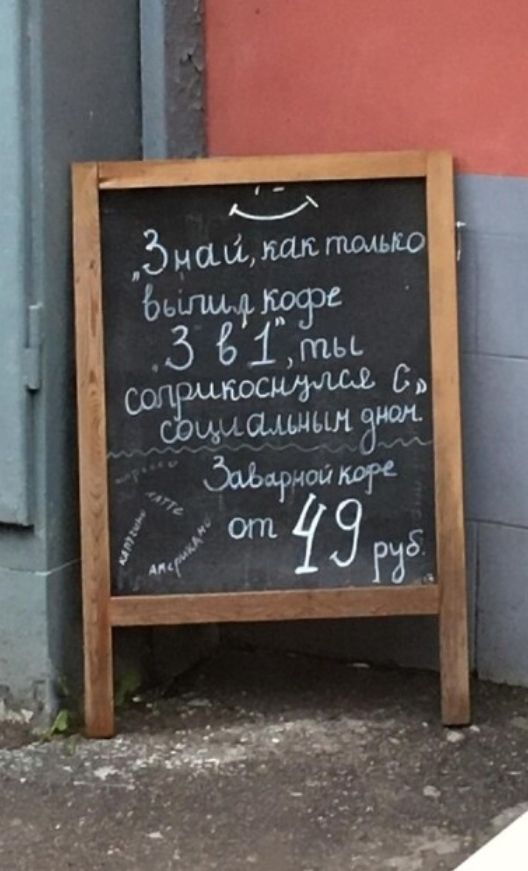 „Знай, как только
выпил кофе
„3 в 1", ты
соприкоснулся с
социальным дном."
Заварной кофе
от 49 руб.
латте
капучино
американо